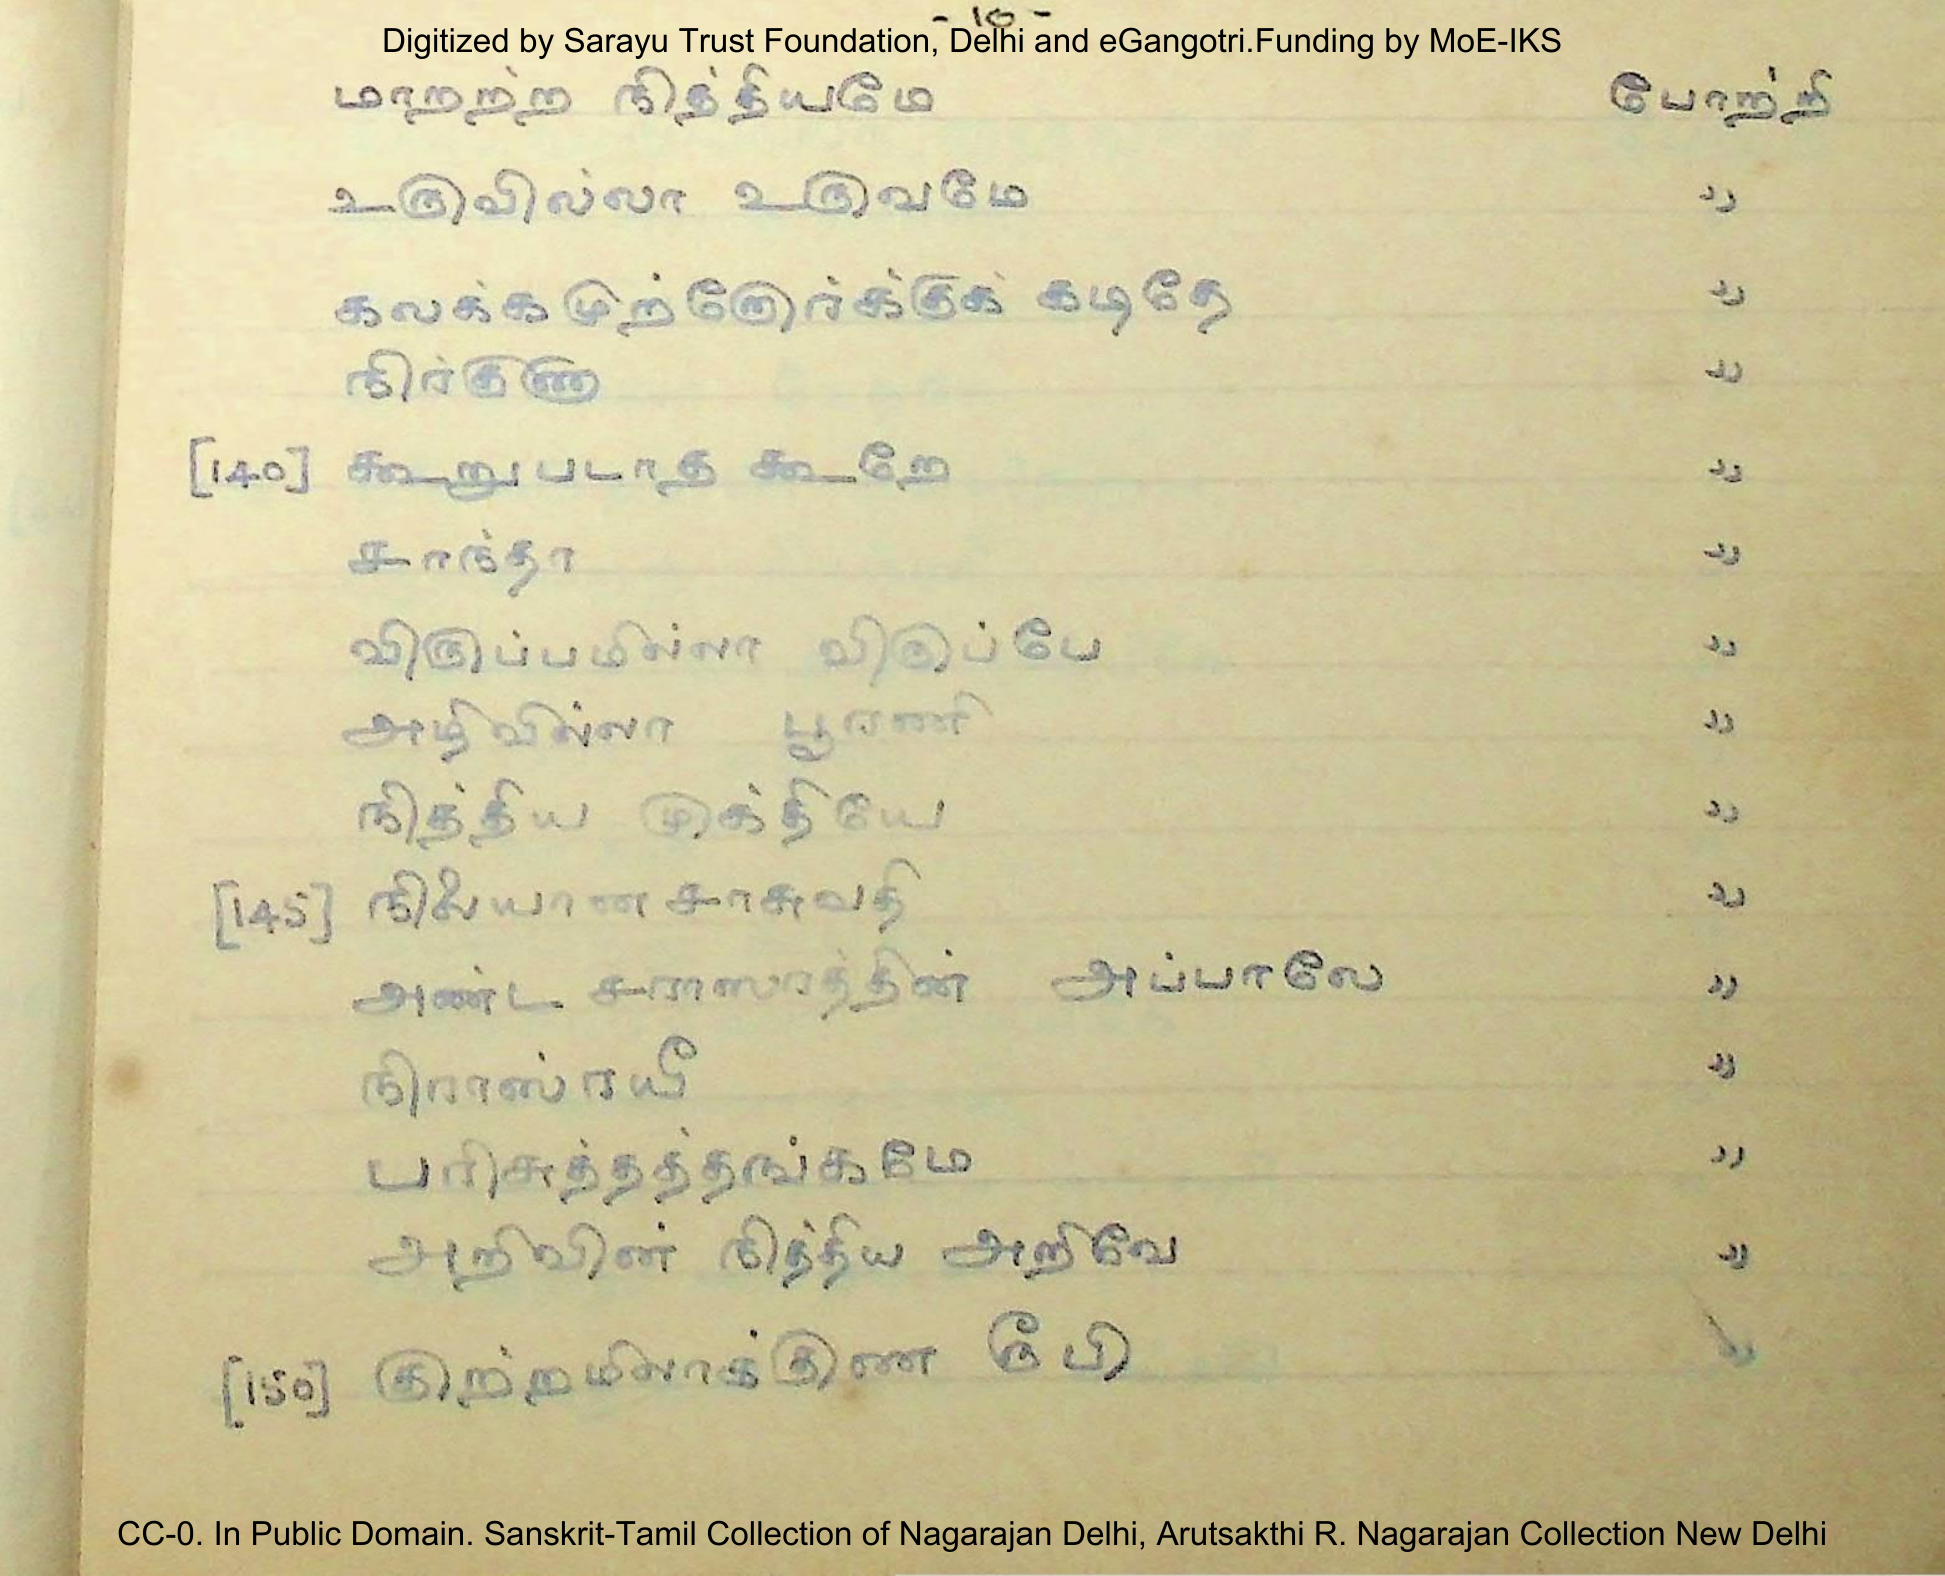 - 10 -
Digitized by Sarayu Trust Foundation, Delhi and eGangotri.Funding by MoE-IKS
மாறற்ற நித்தியமே போற்றி
உருவில்லா உருவமே ,,
கலக்கமுற்றோர்க்குக் கடிதே ,,
நிர்குணா ,,
[140] கூறுபடாத கூறே ,,
சாந்தா ,,
விருப்பமில்லா விருப்பே ,,
அழிவில்லா பூரணி ,,
நித்திய முக்தியே ,,
[145] நிலையான சாசுவதி ,,
அண்ட சராஸரத்தின் அப்பாலே ,,
நிராஸ்ரயீ ,,
பரிசுத்தத்தங்கமே ,,
அறிவின் நித்திய அறிவே ,,
[150] குற்றமிலாக்குண ரூபி ,,
CC-0. In Public Domain. Sanskrit-Tamil Collection of Nagarajan Delhi, Arutsakthi R. Nagarajan Collection New Delhi